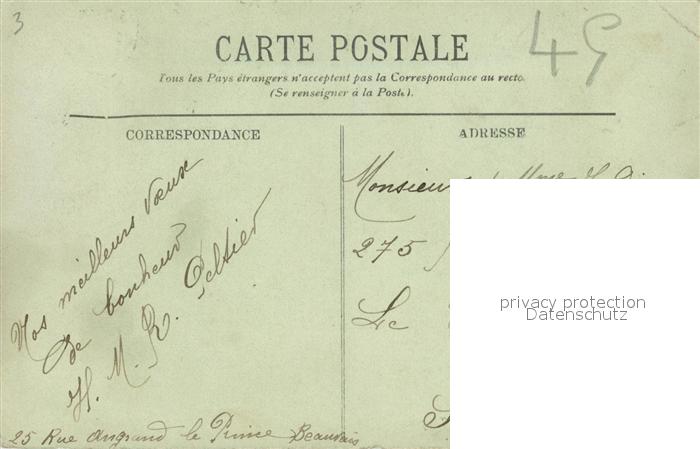 3
45
CARTE POSTALE
Tous les Pays étrangers n'acceptent pas la Correspondance au recto.
(Se renseigner à la Poste).
CORRESPONDANCE
Nos meilleurs vœux
de bonheur
H. M. R. Peltier
25 Rue Angrand le Prince Beauvais
ADRESSE
Monsieur
275
Le
privacy protection
Datenschutz